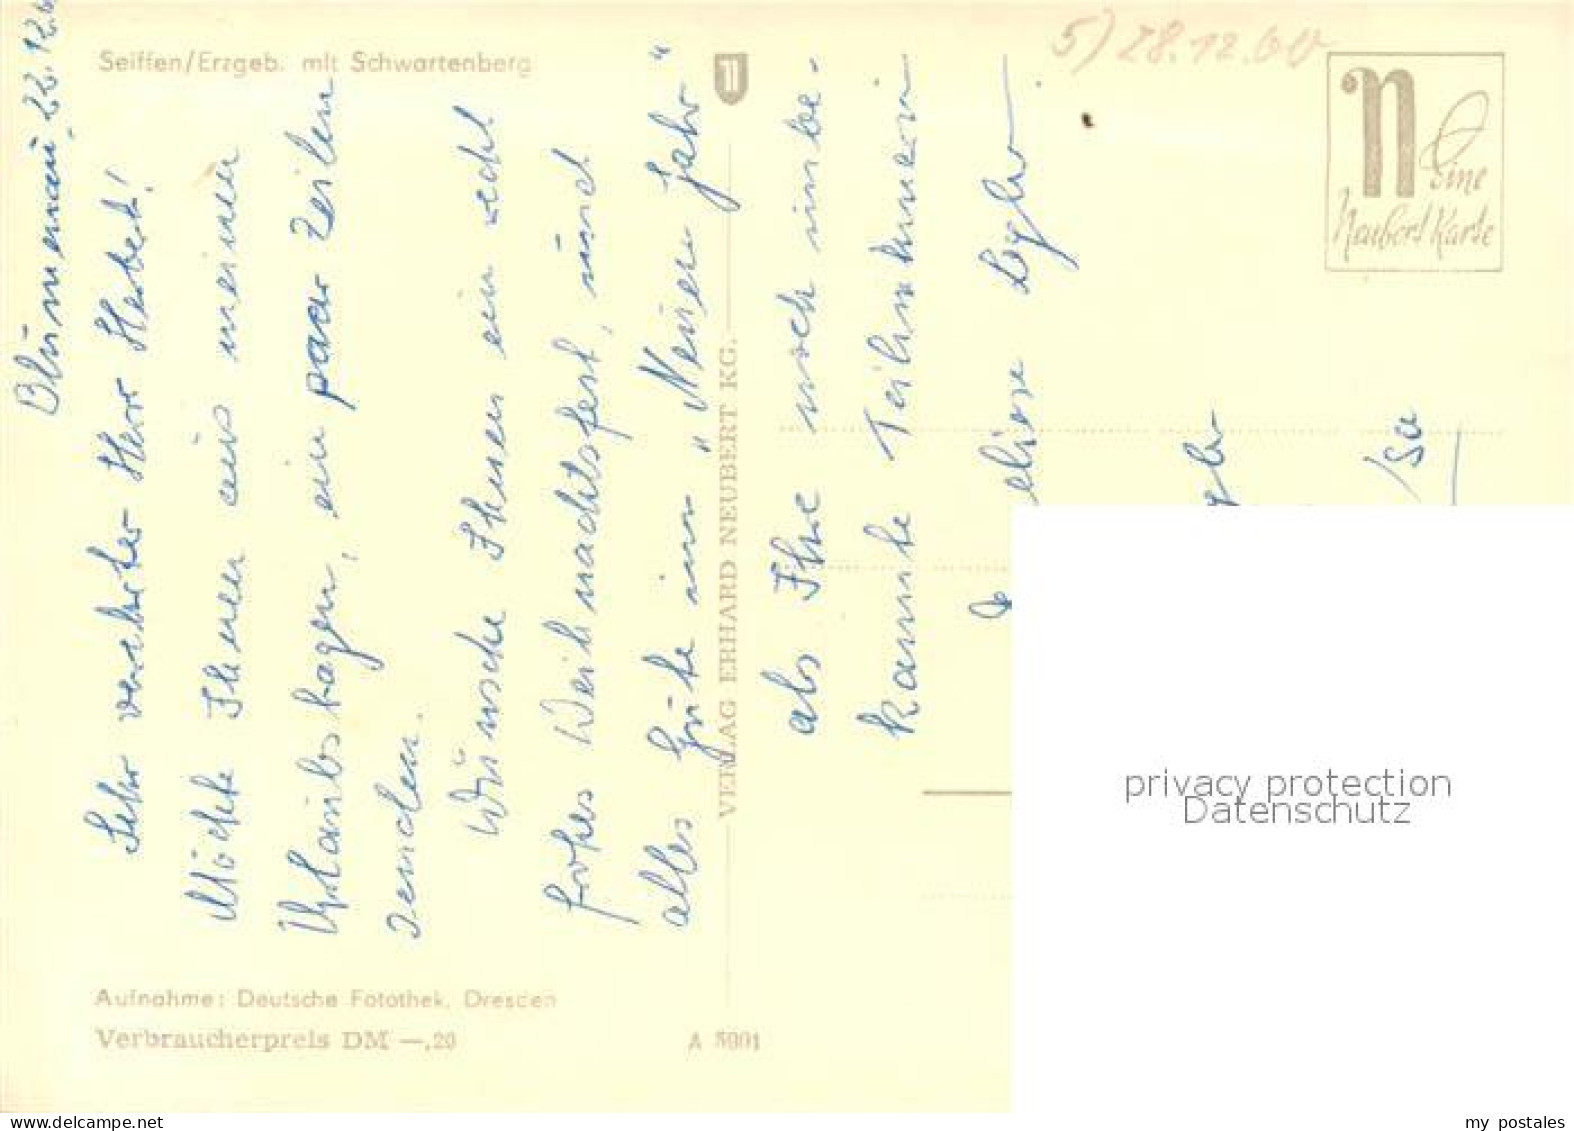 Seiffen/Erzgeb. mit Schwartenberg
5) 28.12.60
n
Eine
Neubert Karte
Blumenau, 22.12.6
Sehr verehrter Herr Herbert!
Möchte Ihnen aus meinen
Urlaubstagen, ein paar Zeilen
senden.
Wünsche Ihnen ein recht
frohes Weihnachtsfest, und
alles Gute im „Neuen Jahr"
als Ihre noch unbe-
kannte Teilnehmerin
VERLAG ERHARD NEUBERT KG.
Aufnahme: Deutsche Fotothek, Dresden
Verbraucherpreis DM —,20
A 5001
privacy protection
Datenschutz
my postales